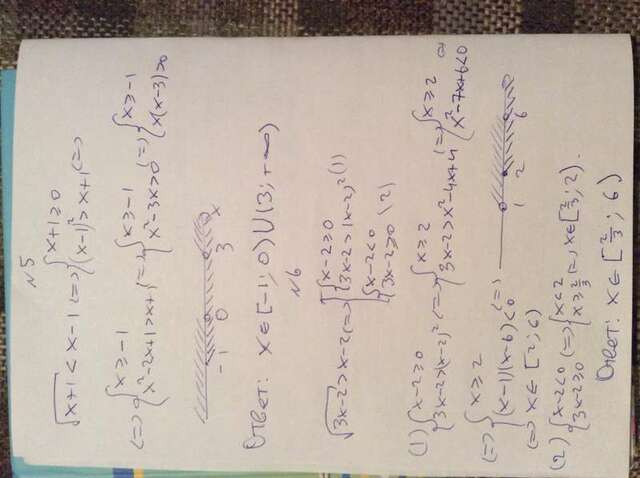 №5
√x+1 < x-1 (=) { x+1≥0 (x-1)²>x+1 (=)
(=) { x≥-1 x²-2x+1>x+1 (=) { x≥-1 x²-3x>0 (=) { x≥-1 x(x-3)>0
-1 0 3 x
Ответ: x∈[-1; 0)∪(3; +∞)
№6
√3x-2 > x-2 (=) [ { x-2≥0 3x-2>(x-2)² (1) { x-2<0 3x-2≥0 (2)
(1) { x-2≥0 3x-2>(x-2)² (=) { x≥2 3x-2>x²-4x+4 (=) { x≥2 x²-7x+6<0
(=) { x≥2 (x-1)(x-6)<0 (=) 1 2 6
(=) x∈[2; 6)
(2) { x-2<0 3x-2≥0 (=) { x<2 x≥2/3 (=) x∈[2/3; 2).
Ответ: x∈[2/3; 6)